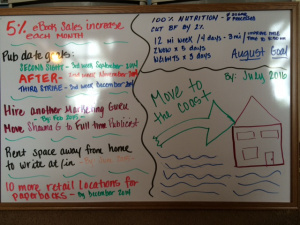 5% eBook Sales increase
EACH MONTH
Pub date goals:
SECOND SIGHT - 3rd week September 2014
AFTER - 2nd week November 2014
THIRD STRIKE - 3rd week December 2014
Hire another Marketing Guru
- By Feb 2015 -
Move Shauna G to Full time Publicist
Rent space away from home
to write at/in
10 more retail locations for
paperbacks - By December 2014
100% NUTRITION -
CUT BF BY 2%
12 mi week / 4 days - 3mi
2 days x 5 days
WEIGHTS x 3 days
August Goal
By: July 2016
Move to
the coast